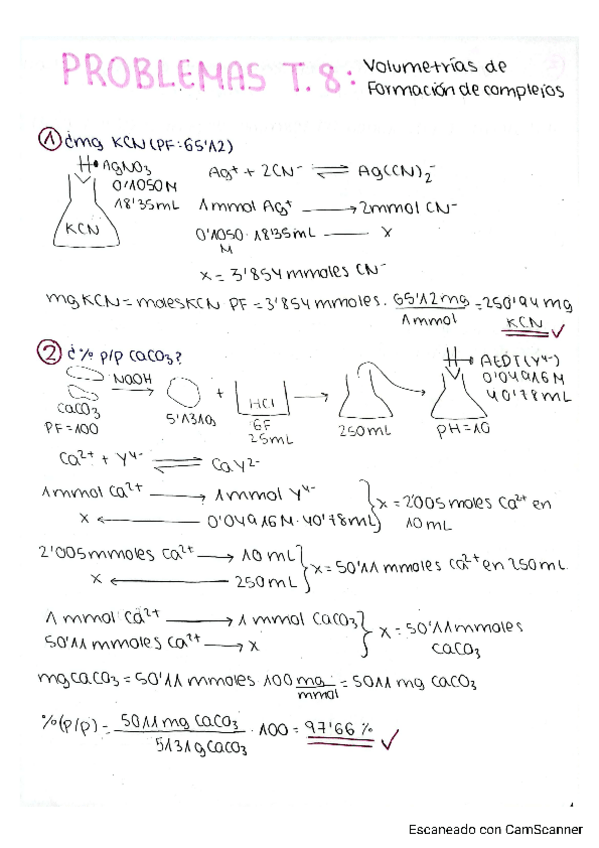 PROBLEMAS T.8: Volumetrías de
Formación de complejos
① ¿mg KCN (PF: 65'12)
AgNO3
0'1050M
18'35mL
KCN
Ag+ + 2CN- ⇌ Ag(CN)2-
1mmol Ag+ ⟶ 2mmol CN-
0'1050 · 18'35mL — x
M
x = 3'854 mmoles CN-
mg KCN = moles KCN PF = 3'854 mmoles · 65'12 mg / 1mmol = 250'94 mg KCN ✓
② ¿% p/p CaCO3?
NaOH
CaCO3
PF=100
5'1310g
+
HCl
6F
25mL
250mL
AEDT(Y4-)
0'04916M
40'78mL
pH=10
Ca2+ + Y4- ⇌ CaY2-
1mmol Ca2+ ⟶ 1mmol Y4-
x ⟵ 0'04916M · 40'78mL } x = 2'005 moles Ca2+ en
10 mL
2'005 mmoles Ca2+ ⟶ 10 mL
x ⟵ 250mL } x = 50'11 mmoles Ca2+ en 250mL.
1 mmol Ca2+ ⟶ 1 mmol CaCO3
50'11 mmoles Ca2+ ⟶ x } x = 50'11 mmoles
CaCO3
mg CaCO3 = 50'11 mmoles · 100 mg/mmol = 5011 mg CaCO3
%(p/p) = 5011 mg CaCO3 / 5131g CaCO3 · 100 = 97'66 % ✓
Escaneado con CamScanner